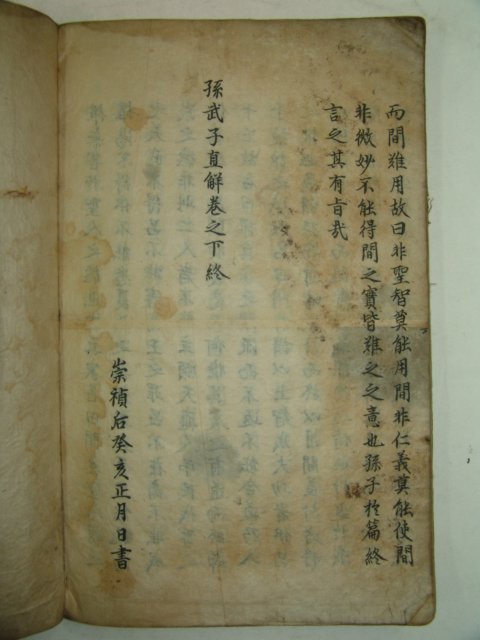 而間難用故曰非聖智莫能用間非仁義莫能使間
非微妙不能得間之寶皆難之之意也孫子於篇終
言之其有旨哉
孫武子直解卷之下終
崇禎后癸亥正月日書